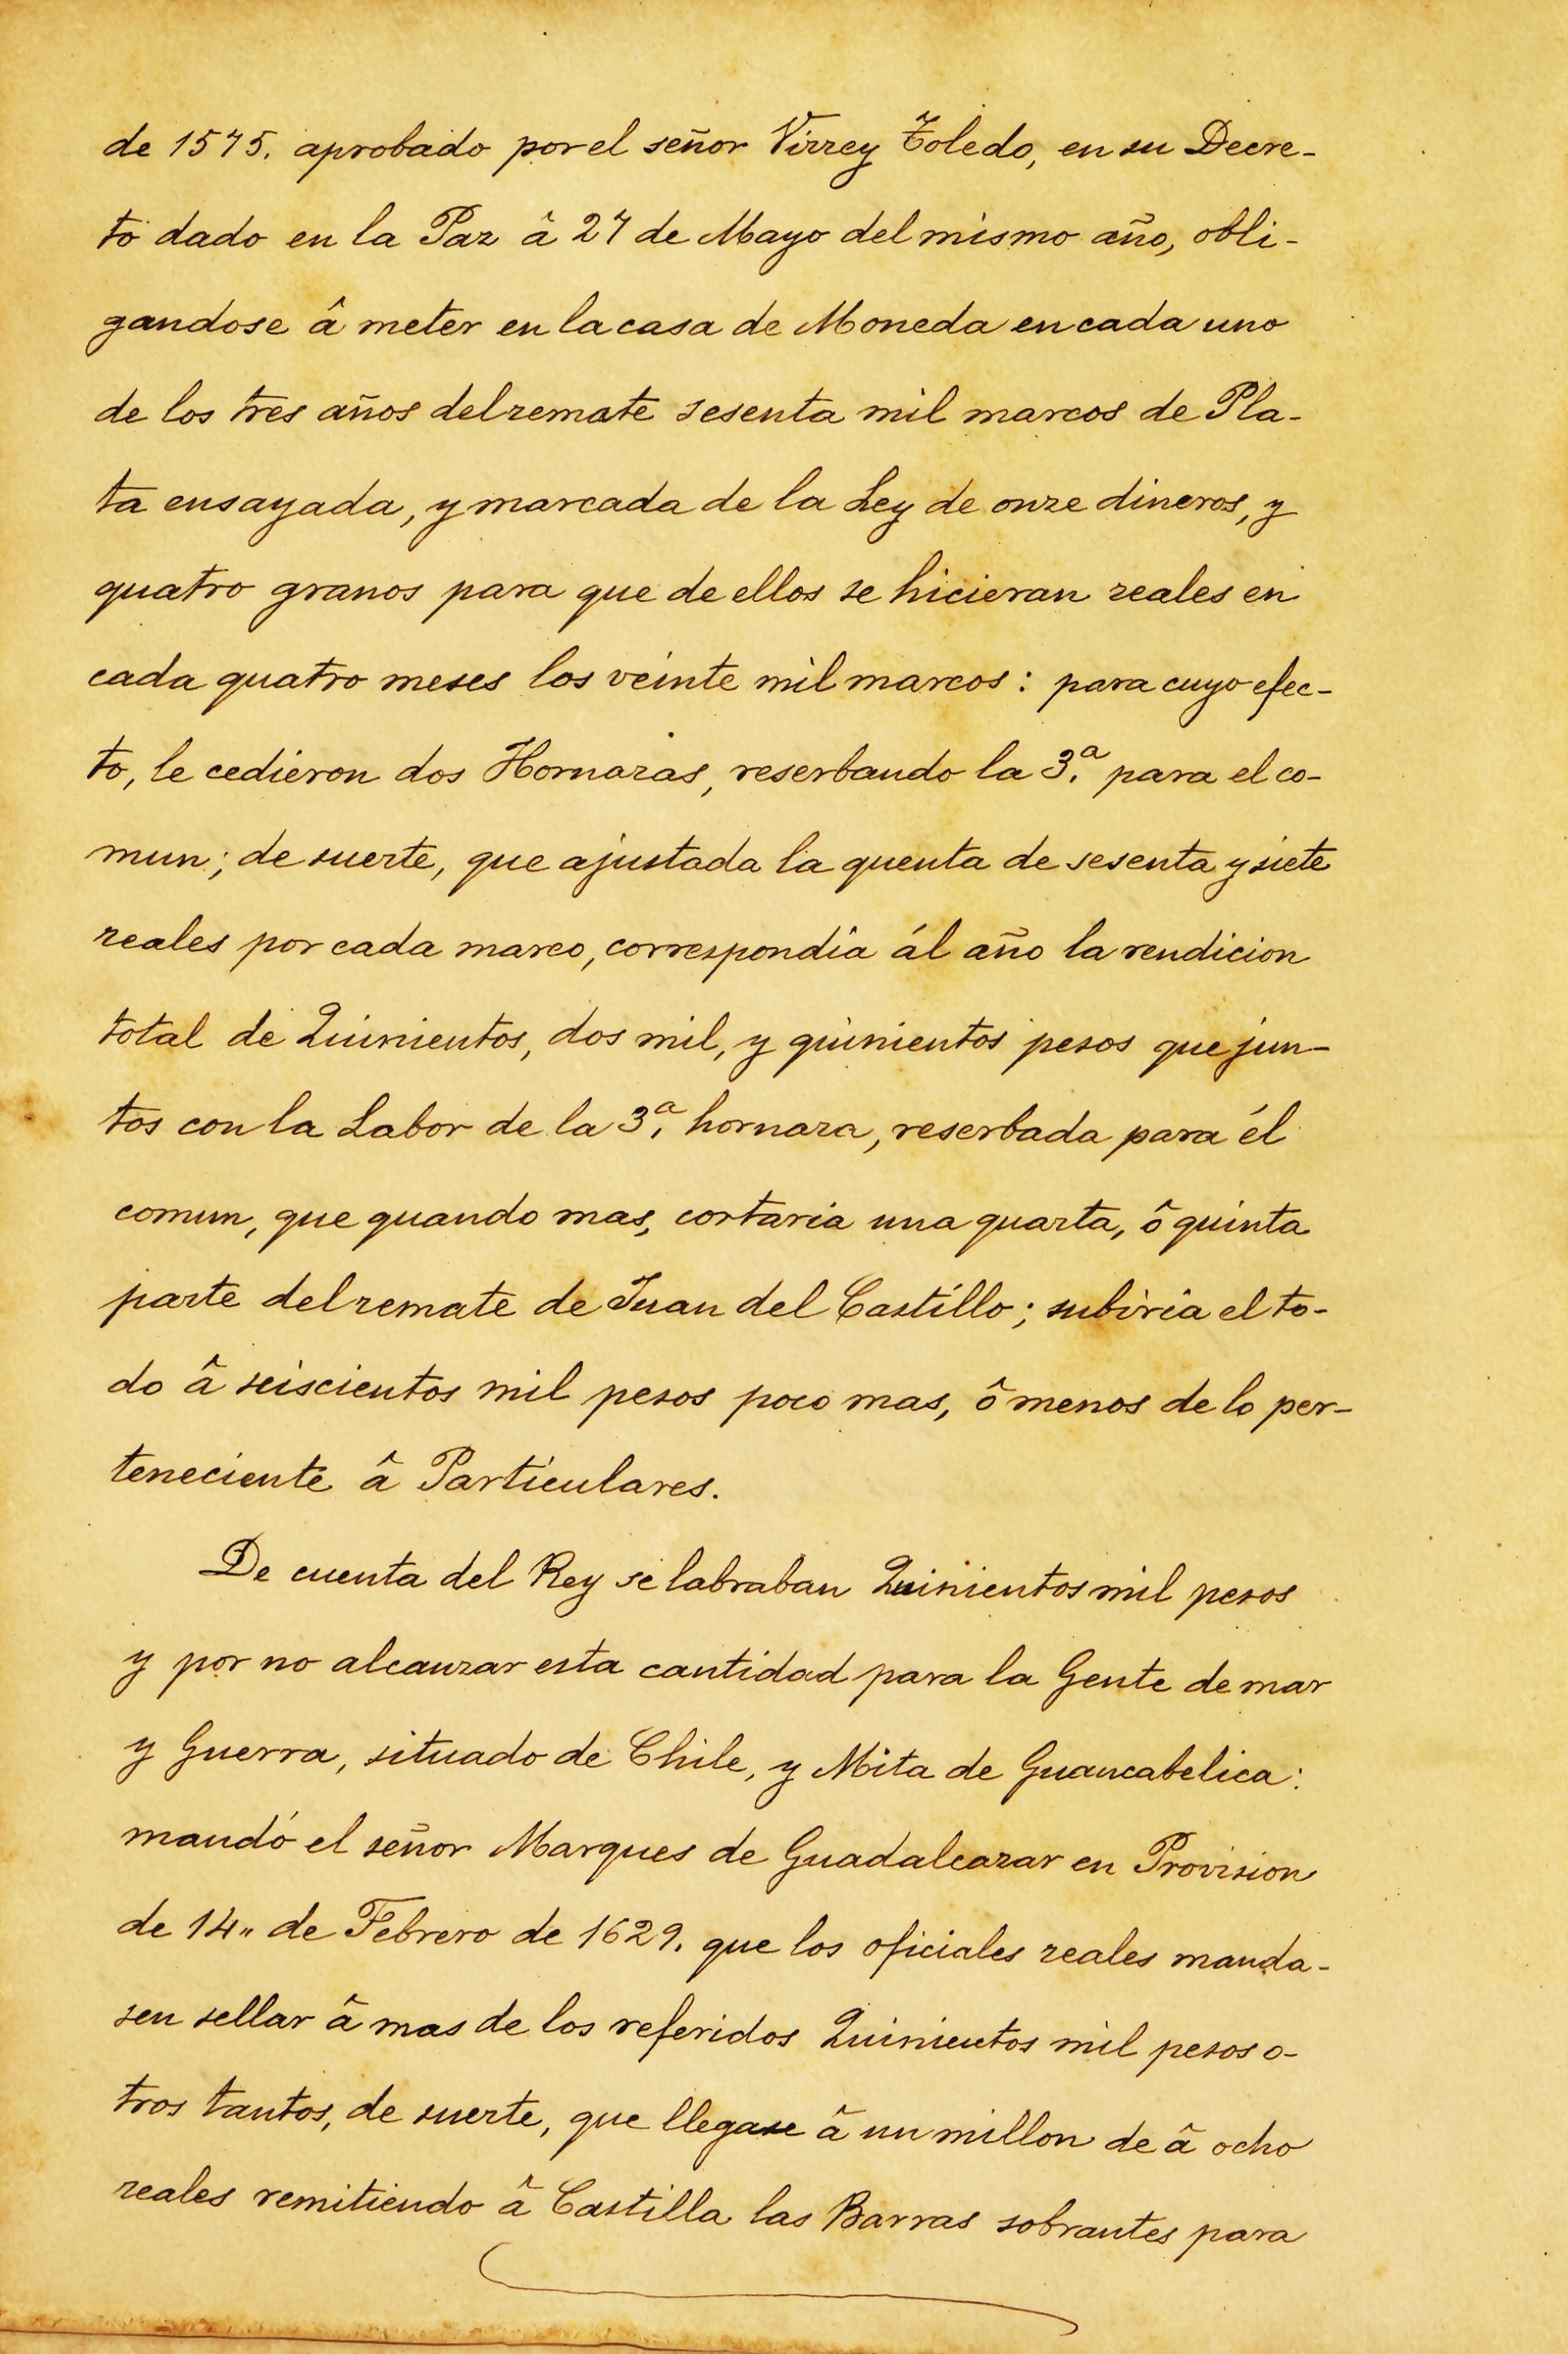 de 1575. aprobado por el señor Virrey Toledo, en su Decre-
to dado en la Paz â 27 de Mayo del mismo año, obli-
gandose â meter en la casa de Moneda en cada uno
de los tres años del remate sesenta mil marcos de Pla-
ta ensayada, y marcada de la Ley de onze dineros, y
quatro granos para que de ellos se hicieran reales en
cada quatro meses los veinte mil marcos: para cuyo efec-
to, le cedieron dos Hornazas, reserbando la 3.ª para el co-
mun; de suerte, que ajustada la quenta de sesenta y siete
reales por cada marco, correspondia ál año la rendicion
total de Quinientos, dos mil, y quinientos pesos que jun-
tos con la Labor de la 3.ª hornaza, reserbada para él
comun, que quando mas, cortaria una quarta, ô quinta
parte del remate de Juan del Castillo; subiria el to-
do â seiscientos mil pesos poco mas, ô menos de lo per-
teneciente â Particulares.
De cuenta del Rey se labraban Quinientos mil pesos
y por no alcanzar esta cantidad para la Gente de mar
y Guerra, situado de Chile, y Mita de Guancabelica:
mandó el señor Marques de Guadalcazar en Provision
de 14,, de Febrero de 1629. que los oficiales reales manda-
sen sellar â mas de los referidos Quinientos mil pesos o-
tros tantos, de suerte, que llegase â un millon de â ocho
reales remitiendo â Castilla las Barras sobrantes para